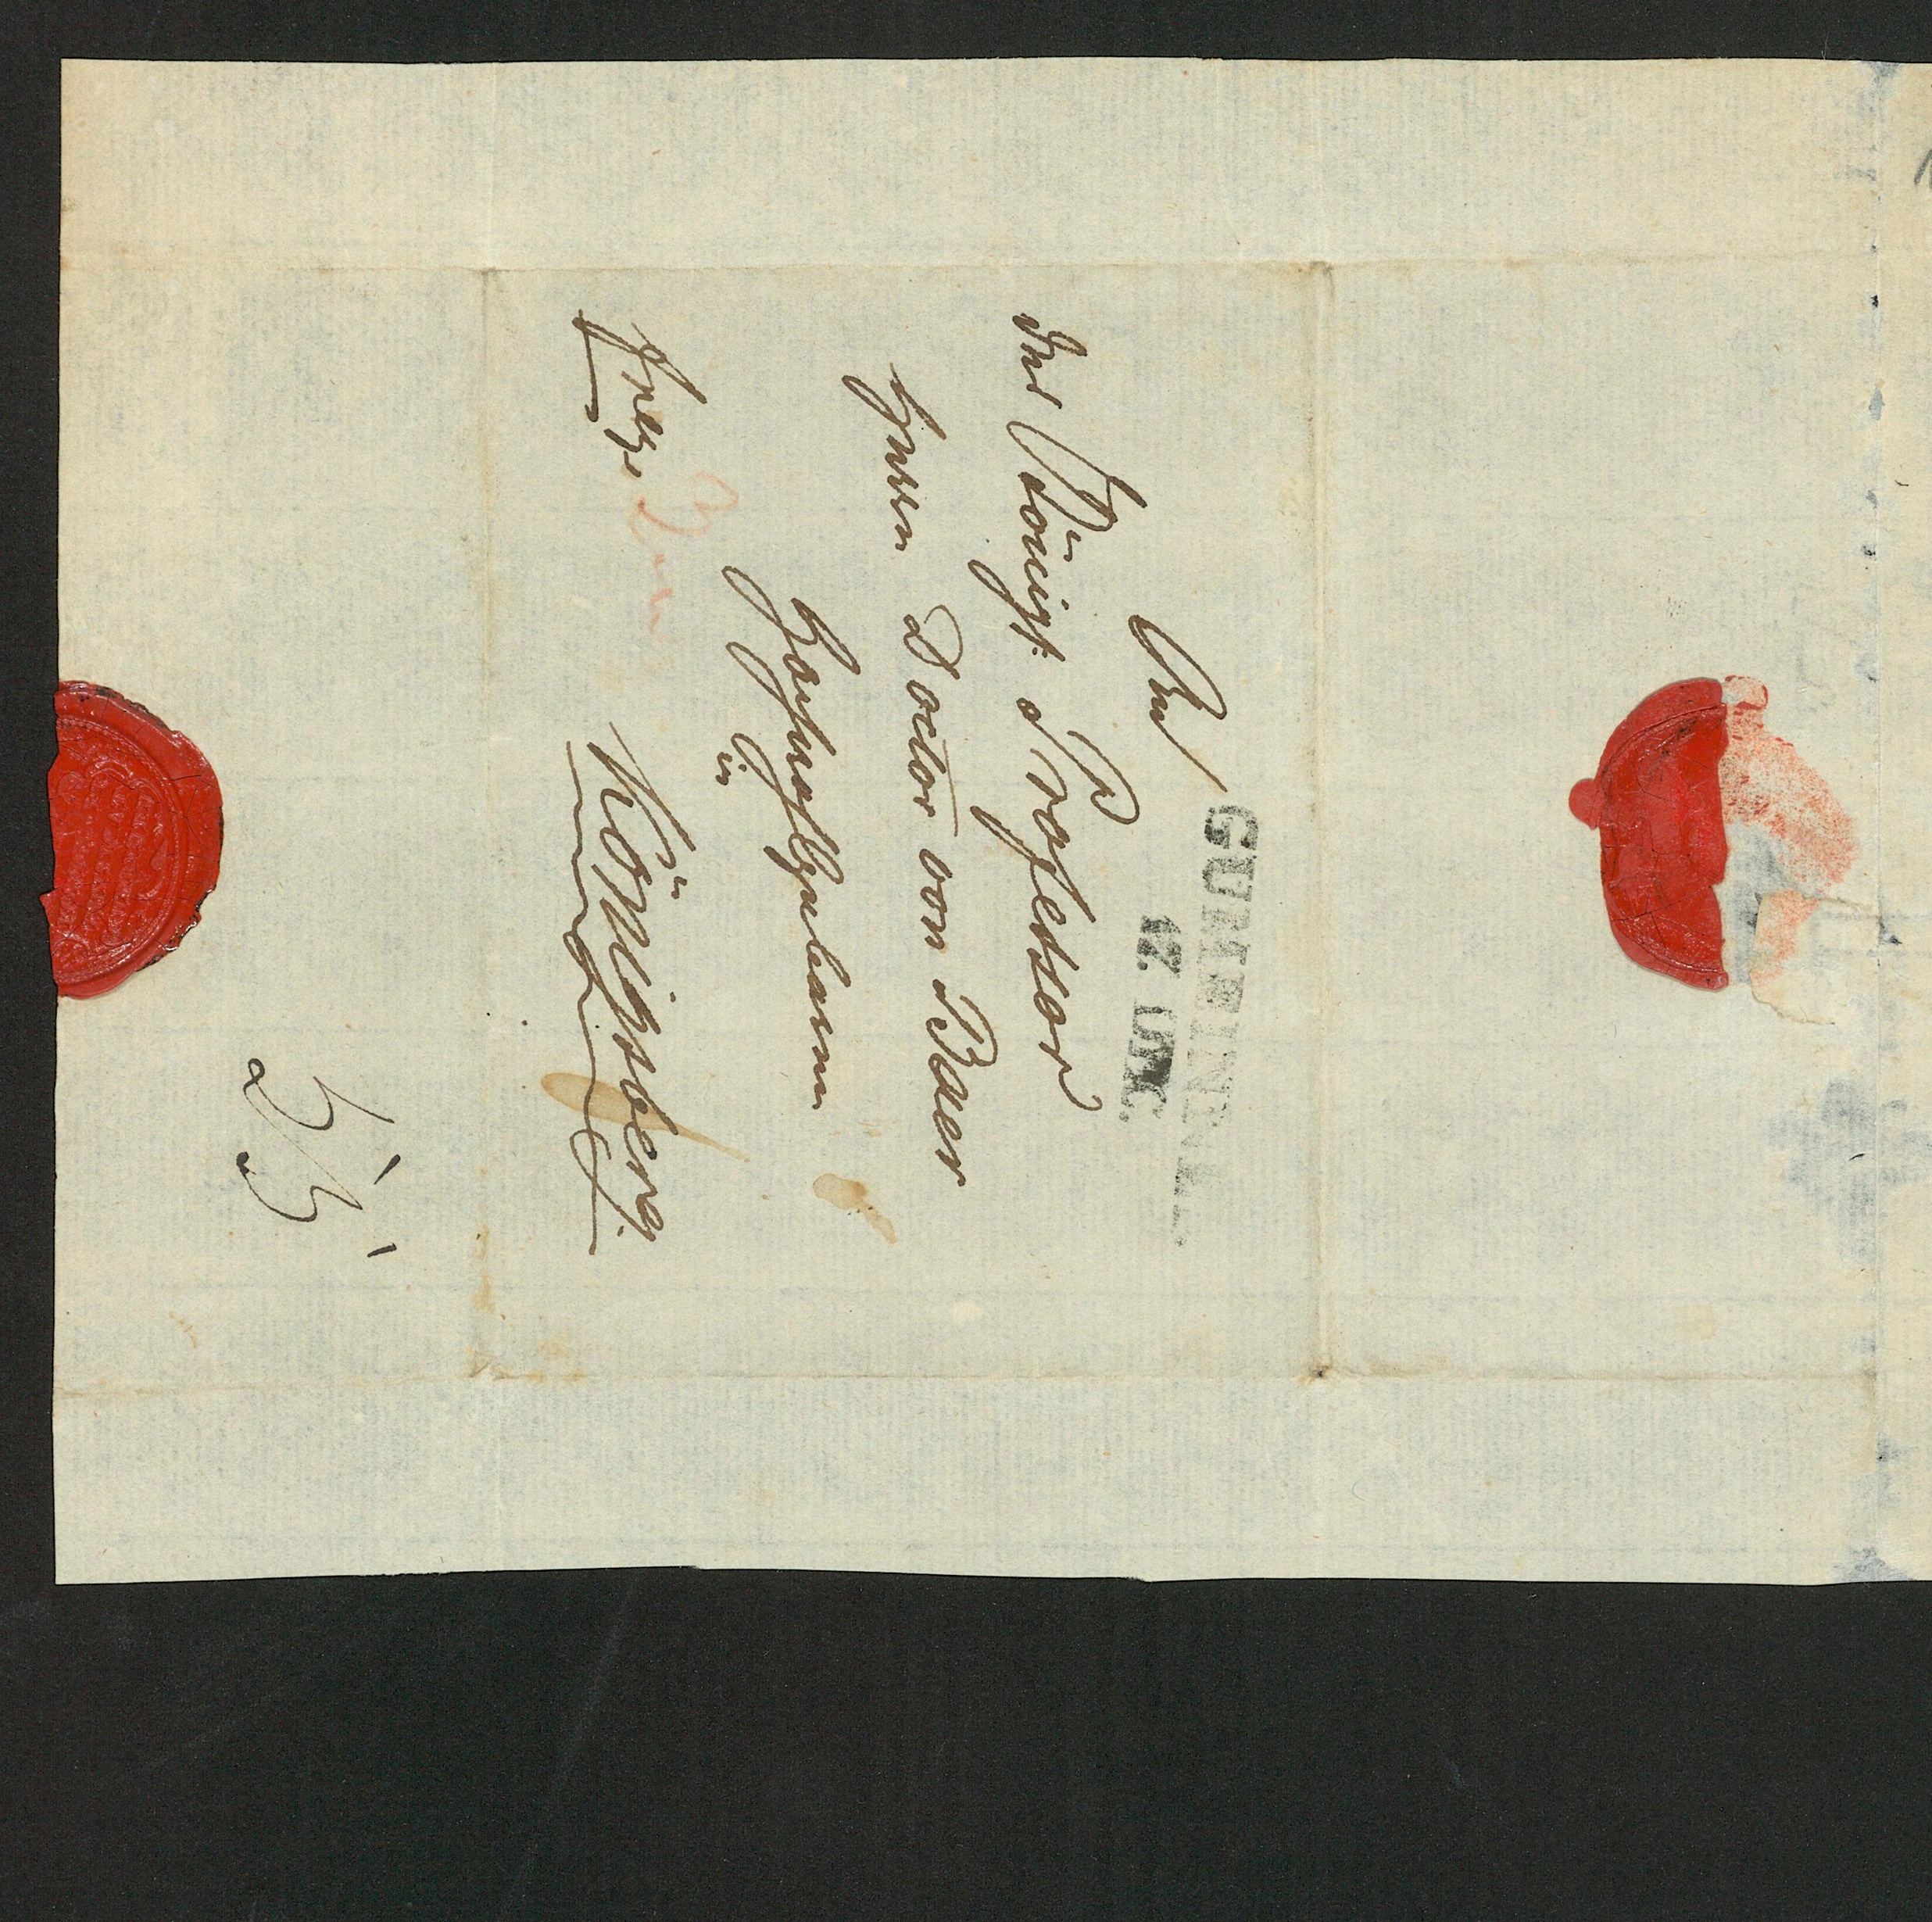 GUMBINNEN
17. DEC.
An
den Königl: Professor
Herrn Doctor von Baer
Hochwohlgeboren
in
Königsberg.
frey.